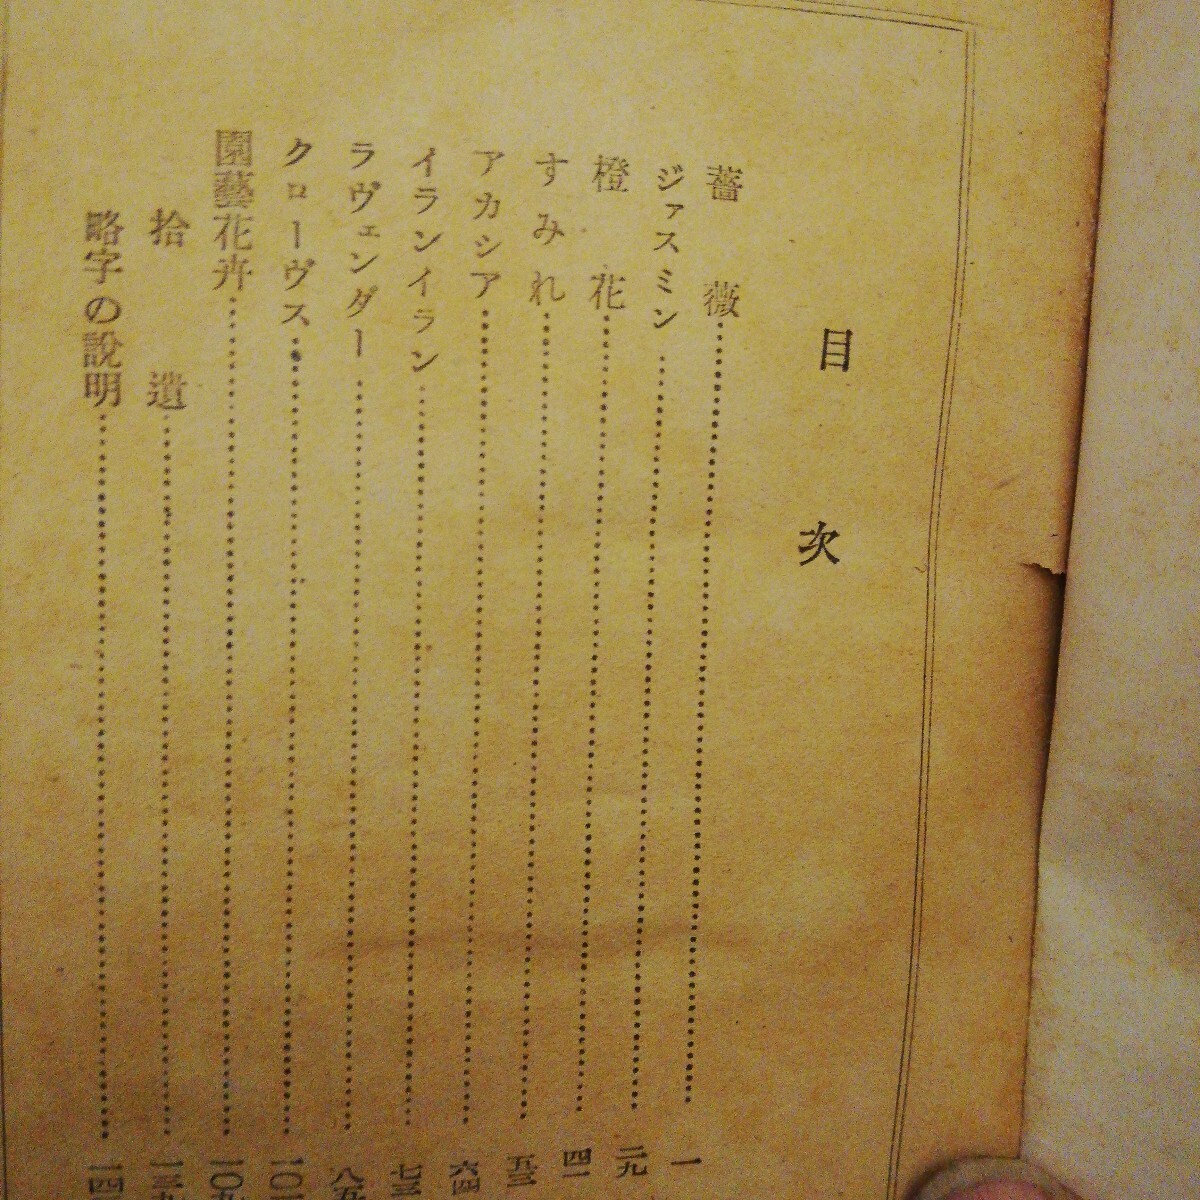 目次
薔薇……一
ジァスミン……二九
橙花……四一
すみれ……五三
アカシア……六四
イランイラン……七三
ラヴェンダー……八五
クローヴス……一〇一
園藝花卉……一〇九
拾遺……一三九
略字の說明……一四